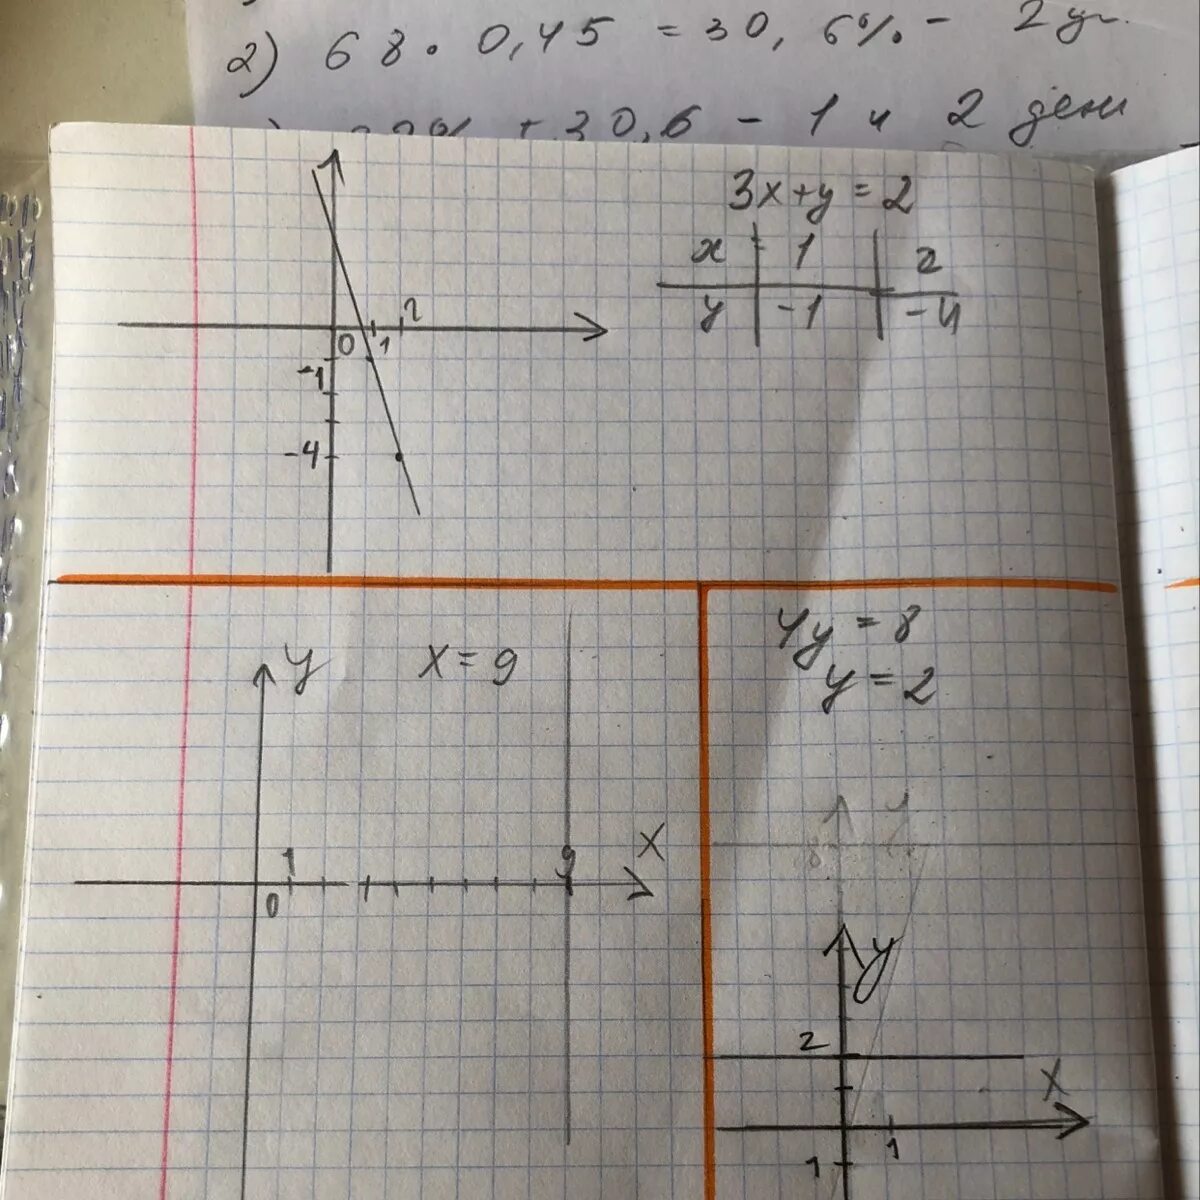 2) 68 · 0,45 = 30,6% -
+ 30,6 - 1 и 2 день
3x+y=2
x | 1 | 2
y | -1 | -4
2
0 1
-1
-4
y
x = 9
4y = 8
y = 2
1 9 x
0
y
2
x
1
1